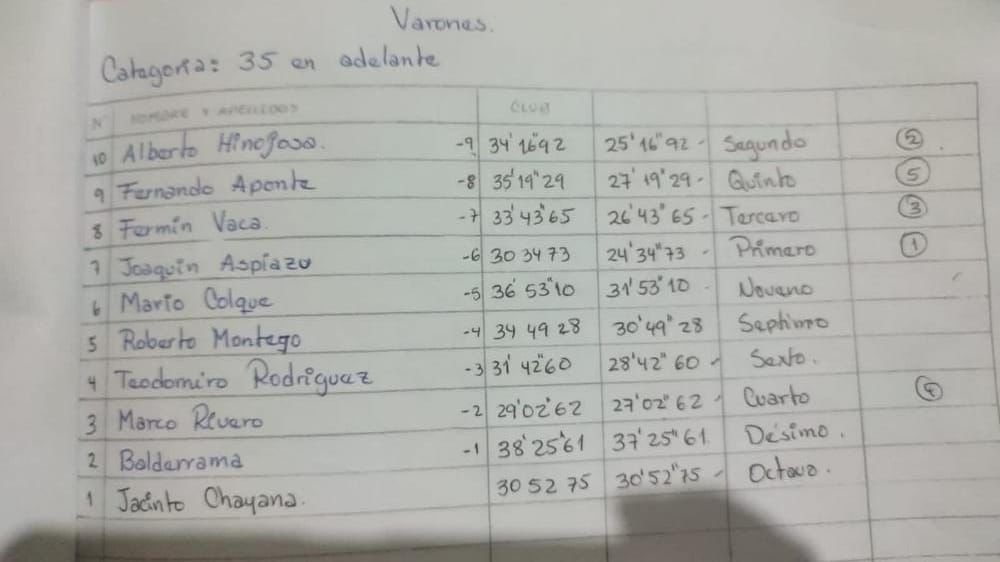 Varones.
Categoria: 35 en adelante
Nº NOMBRE Y APELLIDOS CLUB
10 Alberto Hinojosa. -9 34'16"92 25'16"92 - Segundo ②.
9 Fernando Aponte -8 35'19"29 27'19"29 - Quinto ⑤
8 Fermin Vaca. -7 33'43"65 26'43"65 - Tercero ③
7 Joaquin Aspiazu -6 30 34 73 24'34"73 - Primero ①
6 Mario Colque -5 36'53"10 31'53"10 - Noveno
5 Roberto Montego -4 34 49 28 30'49"28 Septimo
4 Teodomiro Rodriguez -3 31'42"60 28'42"60 - Sexto.
3 Marco Rivero -2 29'02"62 27'02"62 - Cuarto ④
2 Balderrama -1 38'25"61 37'25"61 Désimo.
1 Jacinto Chayana. 30 52 75 30'52"75 - Octavo.